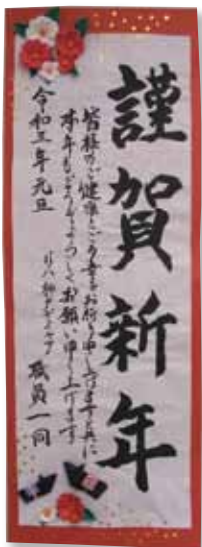 謹賀新年
皆様のご健康とご多幸をお祈り申し上げますと共に
本年もどうぞよろしくお願い申し上げます
令和三年元旦
職員一同